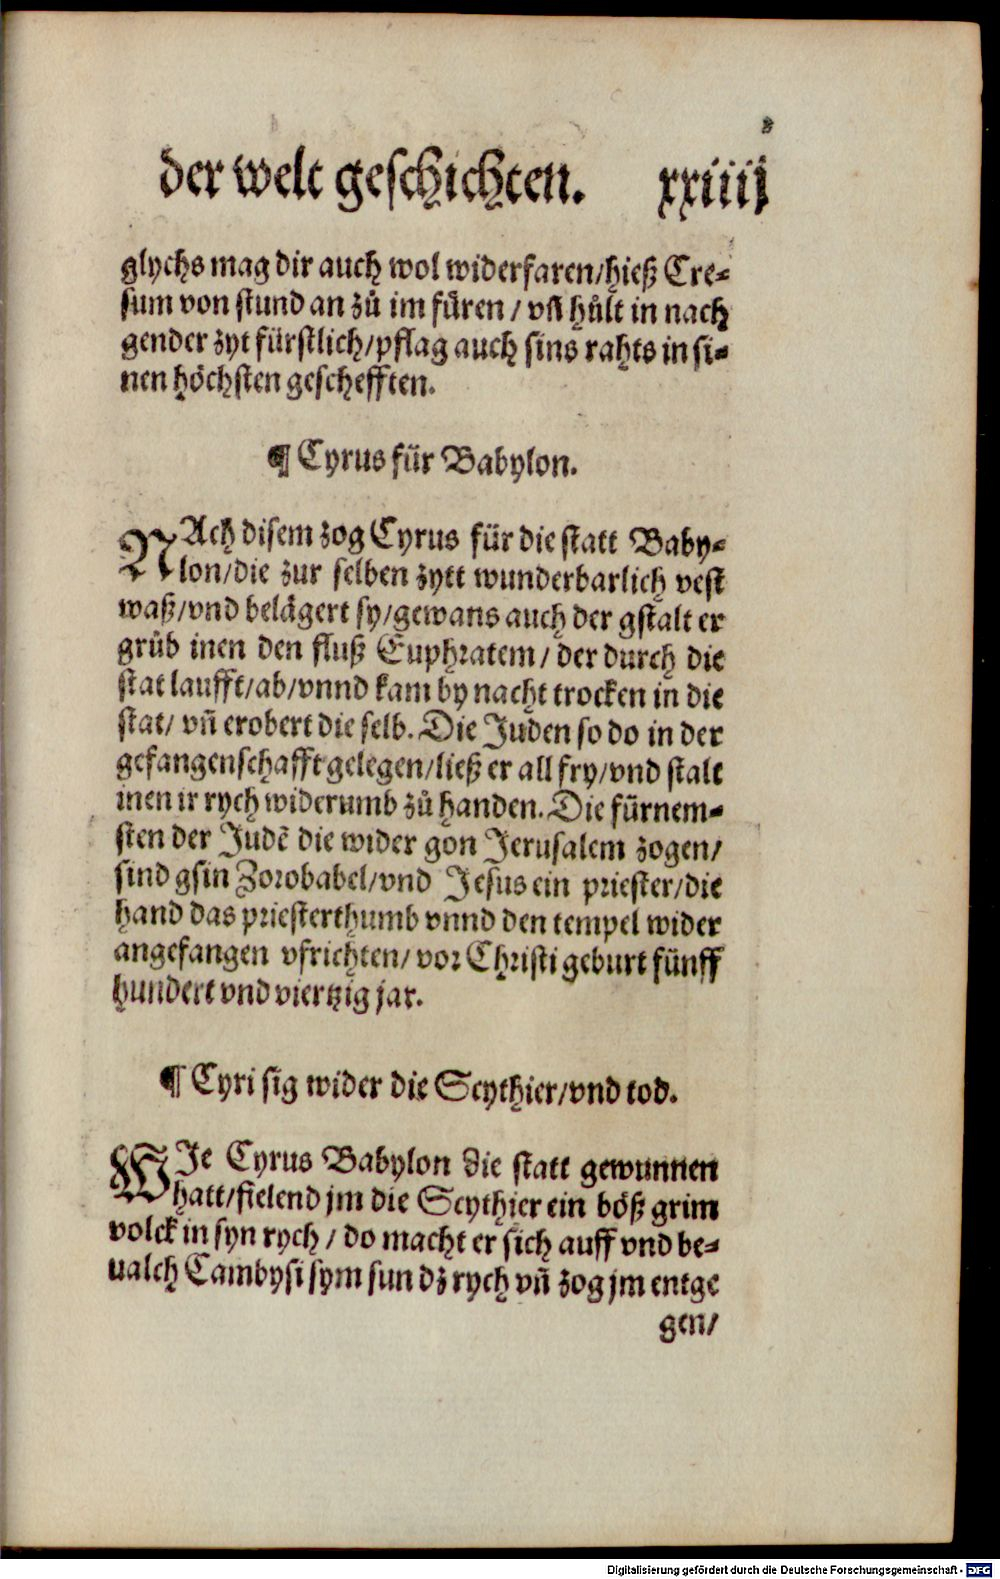 der welt geschichten. xxiiij
glychs mag dir auch wol widerfaren/hieß Cre⸗
sum von stund an zů im füren / vñ hůlt in nach
gender zyt fürstlich/pflag auch sins rahts in si⸗
nen höchsten gescheff ten.
¶ Cyrus für Babylon.
NAch disem zog Cyrus für die statt Baby⸗
lon/die zur selben zytt wunderbarlich vest
waß/vnd belägert sy/gewans auch der gstalt er
grůb inen den fluß Euphratem/ der durch die
stat laufft/ab/vnnd kam by nacht trocken in die
stat/ vñ erobert die selb. Die Juden so do in der
gefangenschafft gelegen/ließ er all fry/vnd stalt
inen ir rych widerumb zů handen. Die fürnem⸗
sten der Judẽ die wider gon Jerusalem zogen/
sind gsin Zorobabel/vnd Jesus ein priester/die
hand das priesterthumb vnnd den tempel wider
angefangen vfrichten/ vor Christi geburt fünff
hundert vnd viertzig jar.
¶ Cyri sig wider die Scythier/vnd tod.
WJe Cyrus Babylon die statt gewunnen
hatt/fielend jm die Scythier ein böß grim
volck in syn rych / do macht er sich auff vnd be⸗
ualch Cambysi sym sun dz rych vñ zog jm entge
gen/
Digitalisierung gefördert durch die Deutsche Forschungsgemeinschaft - DFG